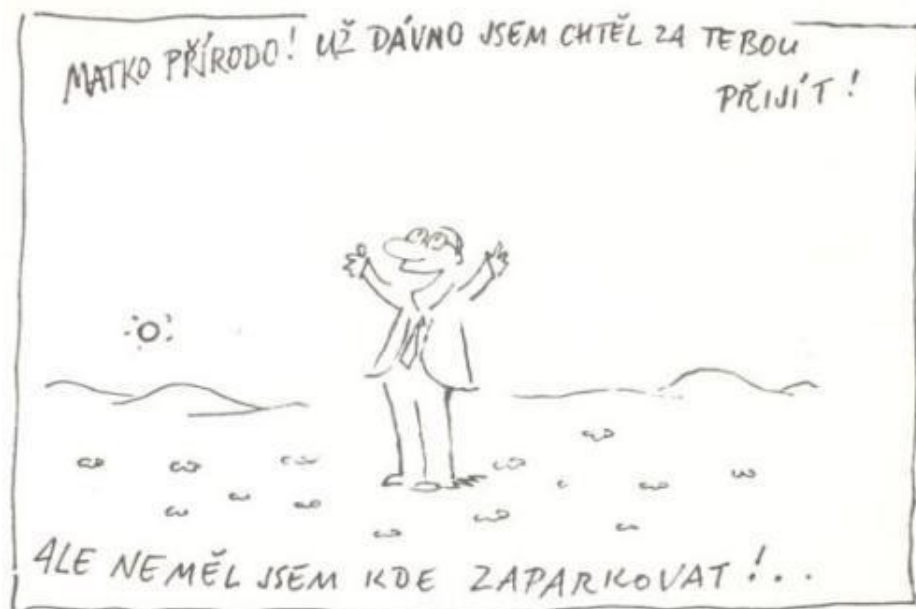 MATKO PŘÍRODO! UŽ DÁVNO JSEM CHTĚL ZA TEBOU
PŘIJÍT!
ALE NEMĚL JSEM KDE ZAPARKOVAT!..